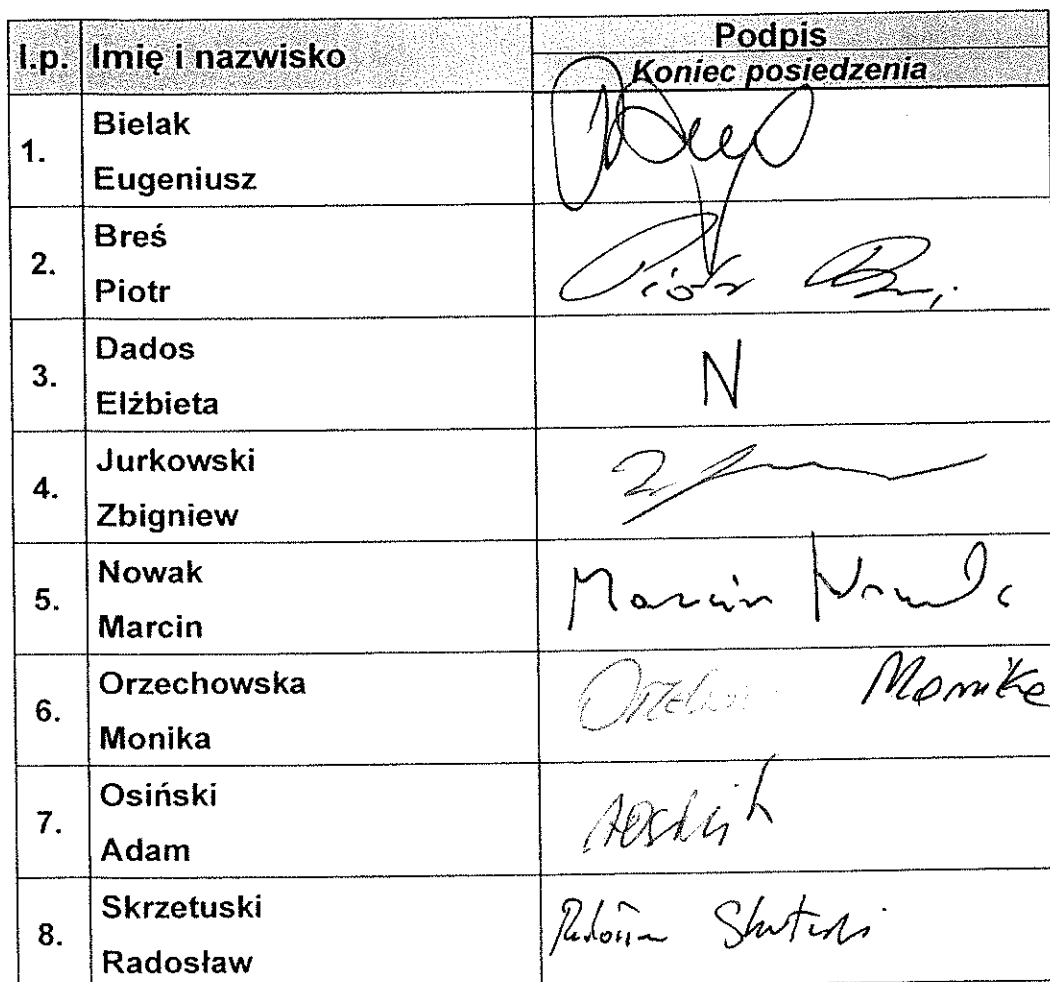 l.p. Imię i nazwisko Podpis
Koniec posiedzenia
1. Bielak
Eugeniusz
2. Breś
Piotr
Piotr
3. Dados
Elżbieta
N
4. Jurkowski
Zbigniew
5. Nowak
Marcin
Marcin Nowak
6. Orzechowska
Monika
Monika
7. Osiński
Adam
8. Skrzetuski
Radosław